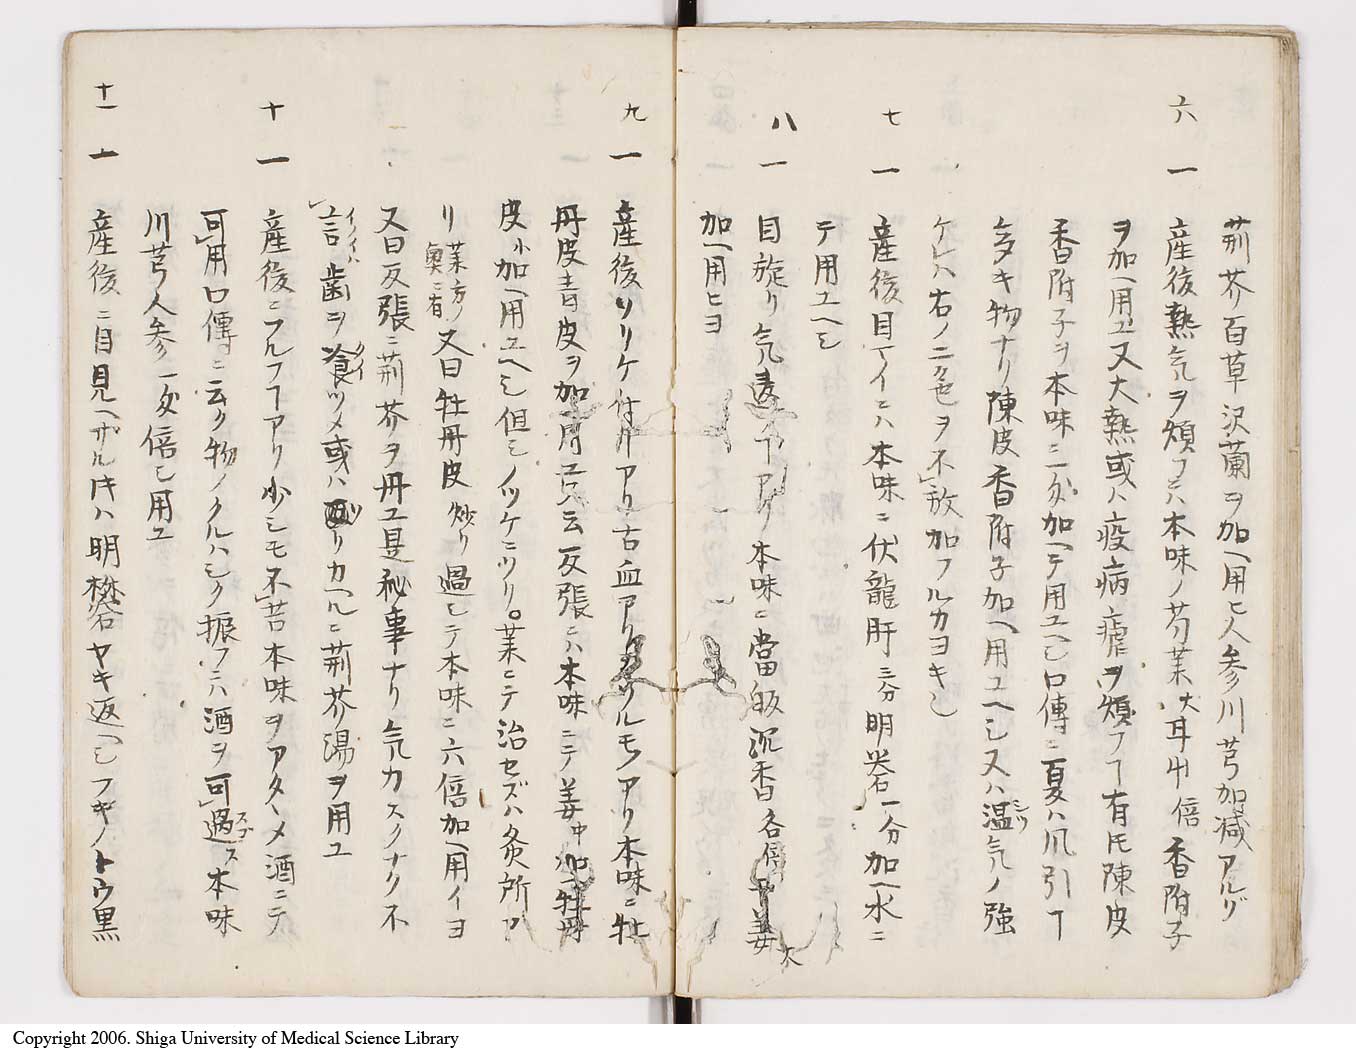 荊芥百草沢蘭ヲ加ヘ用ヒ人参川芎加減アルヘ
六 一 産後熱気ヲ煩フニハ本味ノ芍薬大 倍香附子
ヲ加ヘ用ユ又大熱或ハ疫病瘧ヲ煩フ 有氏陳皮
香附子ヲ本味ニ 加ヘテ用ユヘシ口傳ニ夏ハ風引
多キ物ナリ陳皮香附子加ヘ用ユヘシ又ハ温気ノ強
ケレハ右ノ二色ヲ不 加フルカヨキ也
七 一 産後目マイニハ本味ニ伏龍肝三分明礬一分加ヘ水ニ
テ用ユヘシ
八 一 目旋リ気違 アリ本味ニ當皈沉香各倍 姜大
加ヘ用ヒヨ
九 一 産後ソリケ付 アリ古血アリ ソルモアリ本味ニ牡
丹皮青皮ヲ加ヘ用ユ又云反張ニハ本味ニテ姜中加牡丹
皮小加ヘ用ユヘシ但シノツケニソリ。薬ニテ治セズハ灸所ア
リ 薬方ノ奥ニ有 又曰牡丹皮炒リ過シテ本味ニ六倍加ヘ用イヨ
又曰反張ニ荊芥ヲ用ユ是秘事ナリ気カスクナク不
言 歯ヲ食ツメ或ハ ソリカヘルニ荊芥湯ヲ用ユ
十 一 産後ニフルフ アリ少シモ不苦本味ヲアタヽメ酒ニテ
可用口傳ニ云ク物ノクルハシク振フニハ酒ヲ可過ス本味
川芎人参一 倍シ用ユ
十一 一 産後ニ目見ヘザルニハ明礬ヤキ返ヘシフキノトウ黒